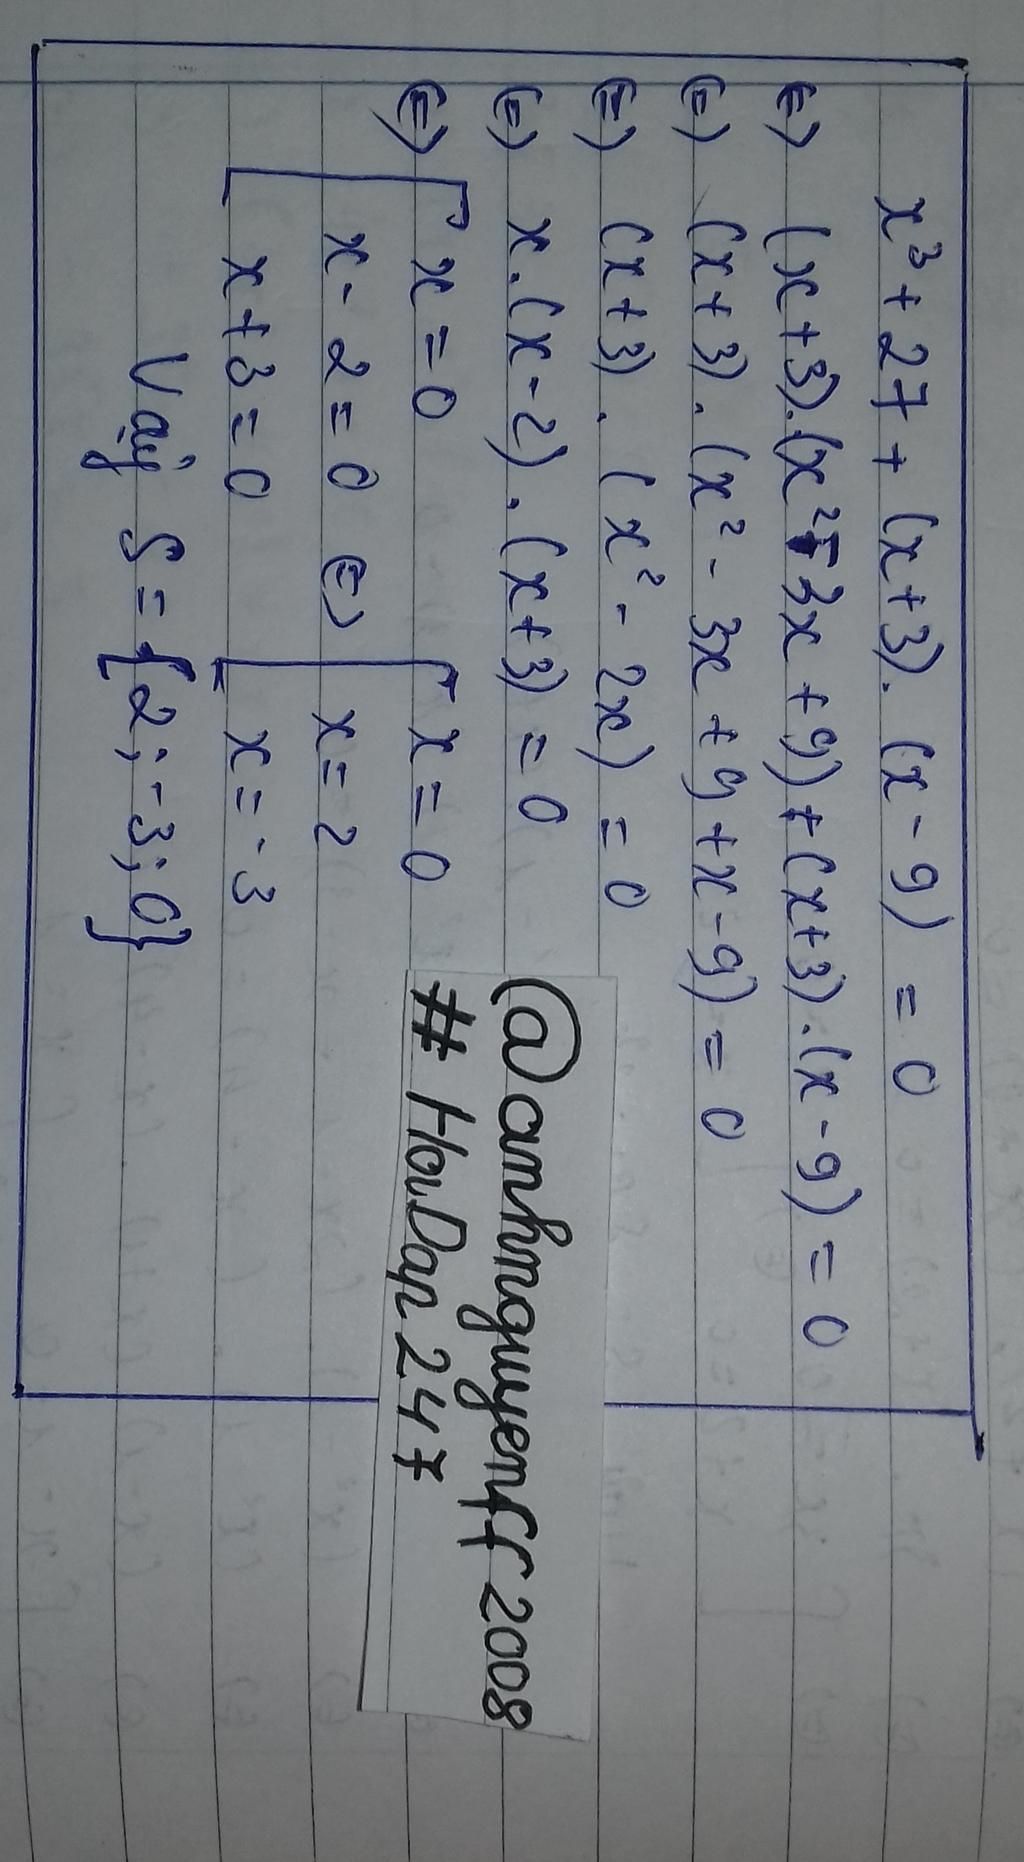 x³ + 27 + (x+3). (x - 9) = 0
(=) (x+3).(x² - 3x + 9) + (x+3).(x - 9) = 0
(=) (x+3). (x² - 3x + 9 + x - 9) = 0
(=) (x+3). (x² - 2x) = 0
(=) x.(x-2).(x+3) = 0
(=) [ x = 0 [ x = 0
x - 2 = 0 (=) x = 2
x + 3 = 0 x = -3
Vậy S = {2; -3; 0}
@anhnguyenff2008
# HoiDap247